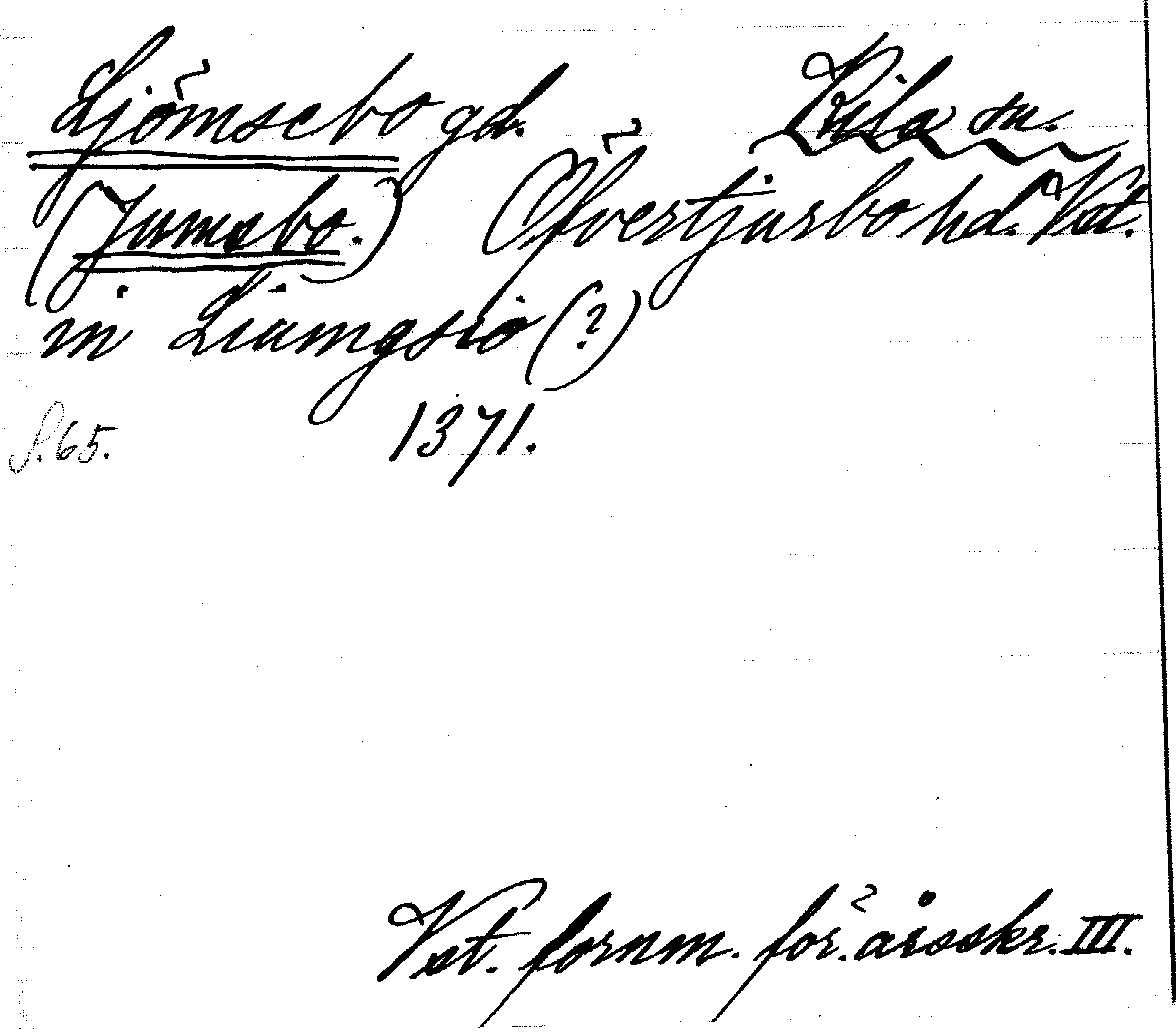 Ljömsebo gd. Kila sn.
(Jumsbo.) Öfvertjurbo hd. Vst.
in Liumgsio (?)
S. 65. 1371.
Vst. fornm. för. årsskr. III.